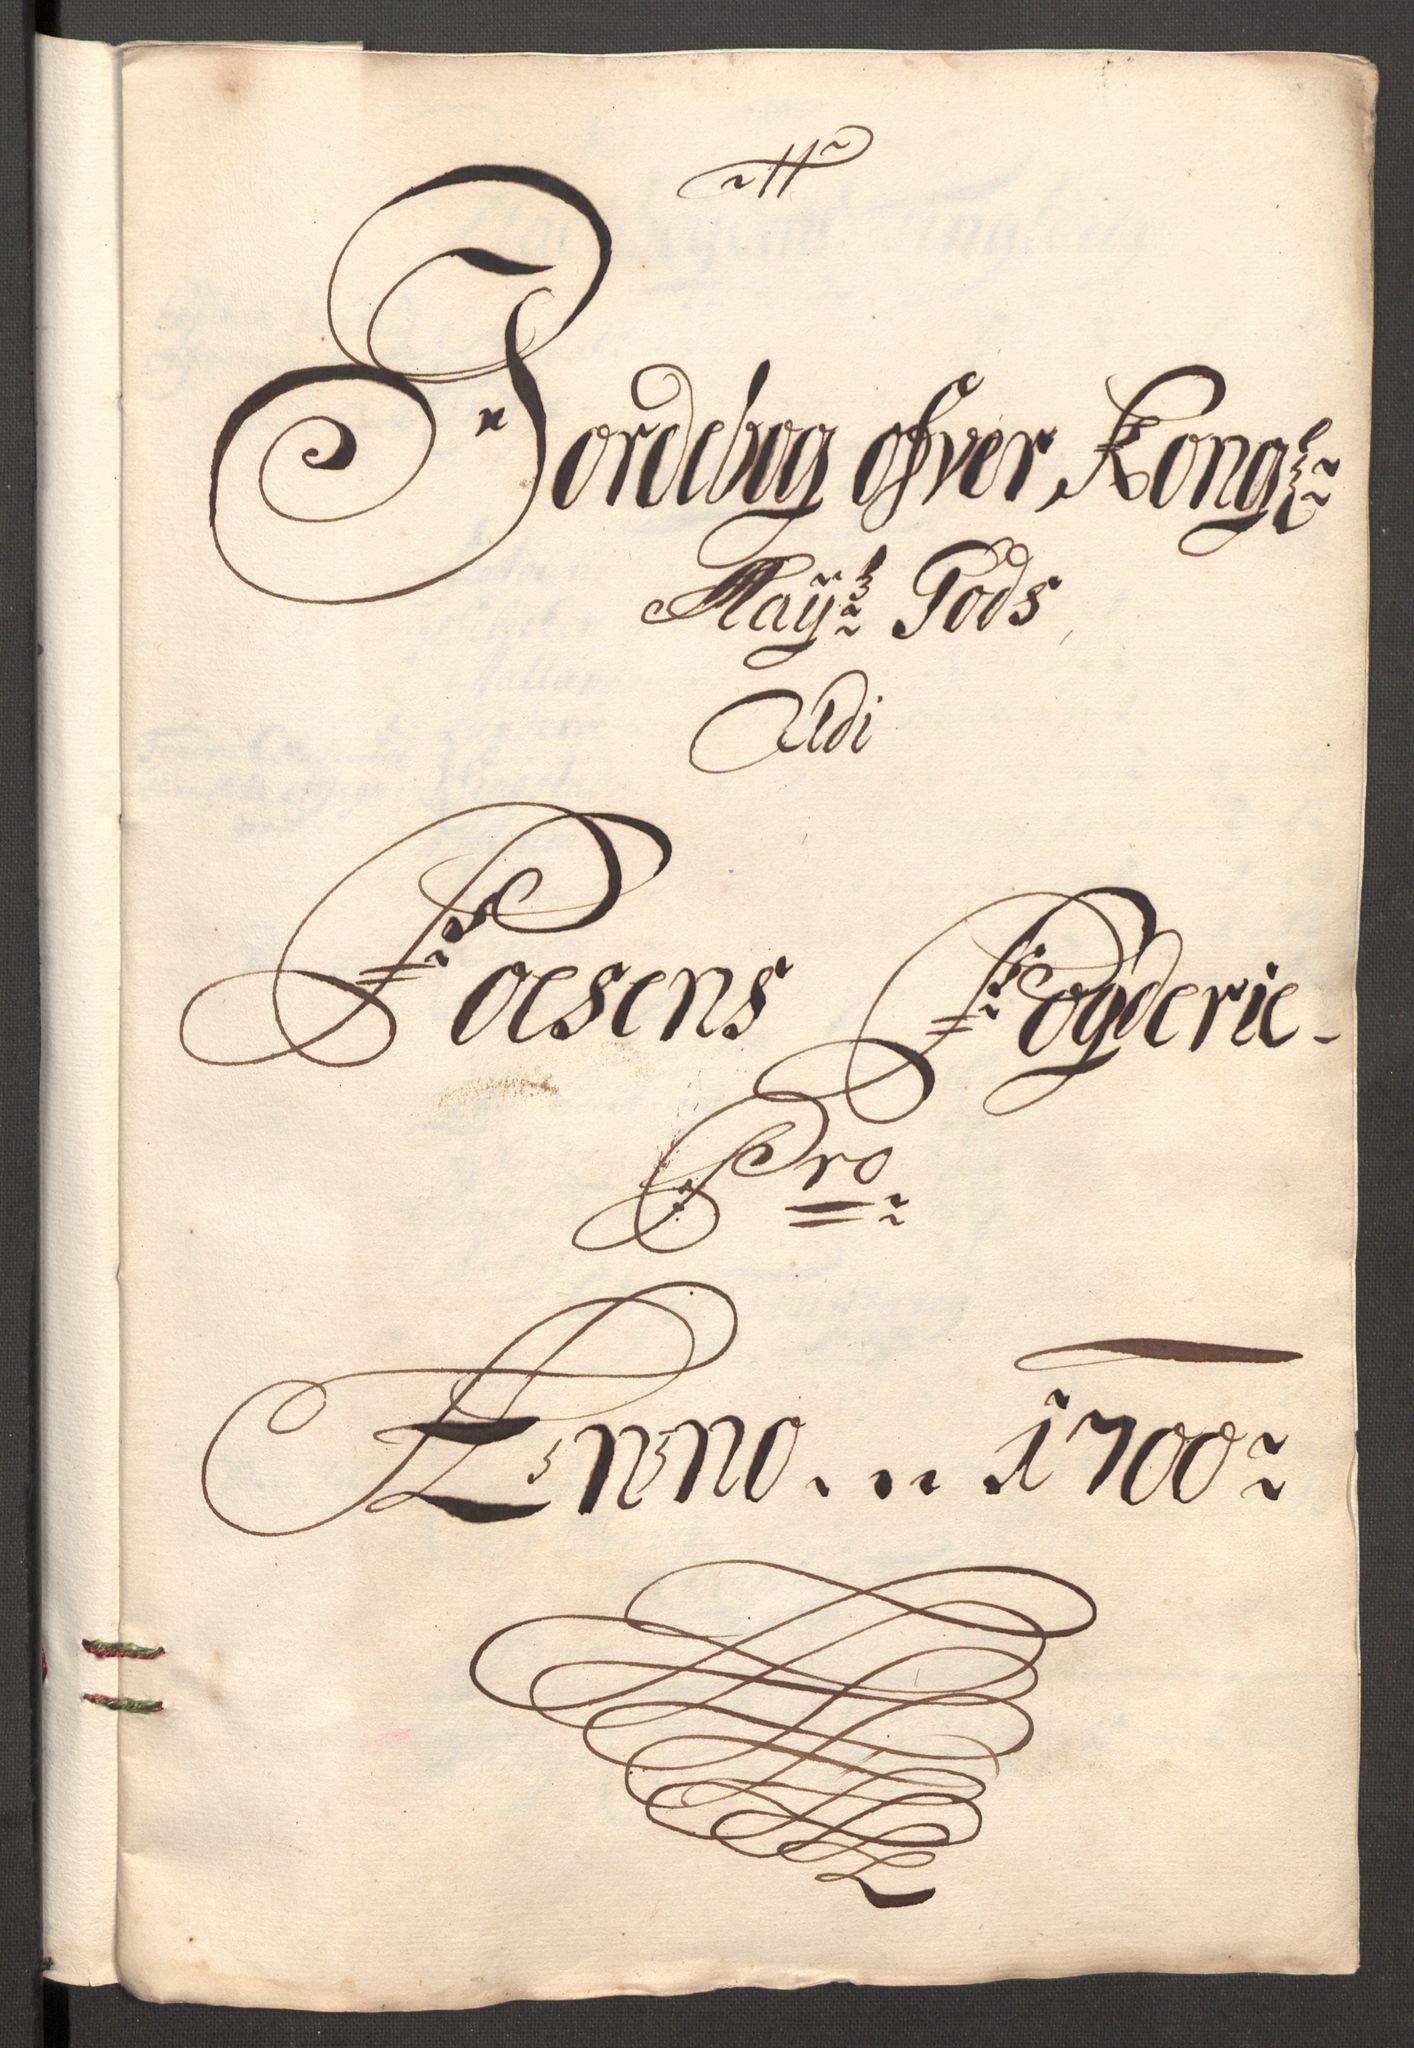 Jordebog ofver Kongl:
Mayt: Gods
Udi
Foesens Fogderie
Pro
Anno... 1700